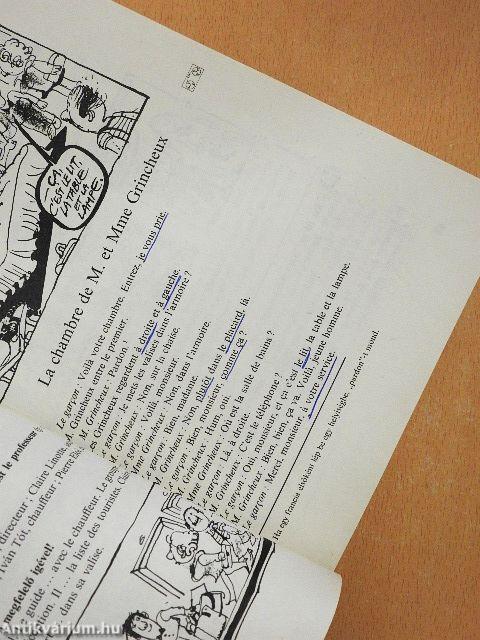 ÇA,
C'EST LE LIT,
LA TABLE
ET LA
LAMPE.
La chambre de M. et Mme Grincheux
Le garçon : Voilà votre chambre. Entrez, je vous prie.
M. Grincheux entre le premier.
M. Grincheux : Pardon
Les Grincheux regardent à droite et à gauche.
Le garçon : Je mets les valises dans l'armoire ?
M. Grincheux : Non, sur la chaise.
Le garçon : Voilà, monsieur.
Mme Grincheux : Non, dans l'armoire.
Le garçon : Bien, madame.
M. Grincheux : Non, plutôt dans le placard, là.
Le garçon : Bien, monsieur, comme ça ?
M. Grincheux : Hum, oui.
Mme Grincheux : Où est la salle de bains ?
Le garçon : Là, à droite.
M. Grincheux : C'est le téléphone ?
Le garçon : Oui, monsieur, et ça c'est le lit, la table et la lampe.
M. Grincheux : Bien, bien, ça va. Voilà, jeune homme.
Le garçon : Merci, monsieur, à votre service.
Ha egy francia elsőként lép be egy helyiségbe, „pardon"-t mond.
est le professeur
directeur : Claire Linotte,
Iván Tót, chauffeur : Pierre
megfelelő igével!
guide ... avec le chauffeur. Le
Il ... la liste des touristes.
dans sa valise.
Antikvárium.hu